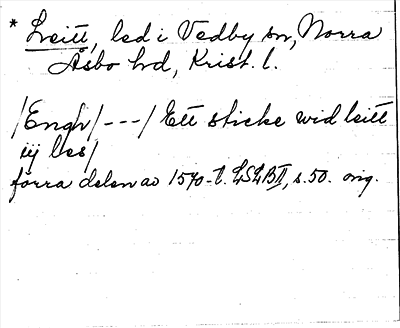 * Leitt, led i Vedby sn, Norra
Åsbo hd, Krist. l.
/Engh/---/ Ett sticke wid leitt
iij les/
förra delen av 1570-t. LSLBII, s.50. orig.